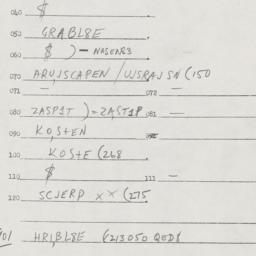 040 $
050 GRABL8E
060 $ )-NASEAR3
070 ARWJSCAPEN / WSRAJSN (150
071 — 072 —
080 ZASP1T )=ZAST1P 081 —
090 KO,STEN
100 KOSTE (268
110 $ 111 —
120 SCJERP XX (275
401 HRIBL8E (213050 QOD8